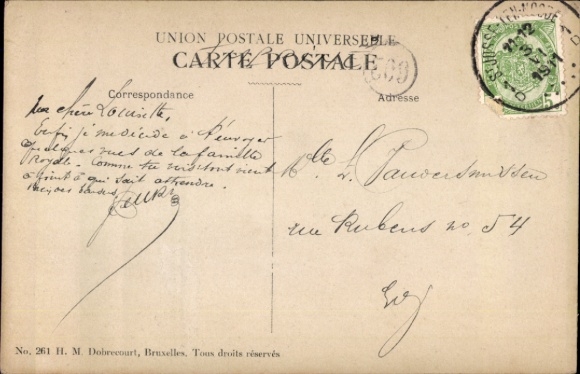 UNION POSTALE UNIVERSELLE
CARTE POSTALE
Correspondance
Adresse
Ma chère Louisette,
Enfin je me décide à t'envoyer
quelques vues de la famille
Royale. Comme tu vois tout vient
à point à qui sait attendre.
Mlle L. Vanversmissen
rue Rubens no. 54
E/V
No. 261 H. M. Dobrecourt, Bruxelles. Tous droits réservés